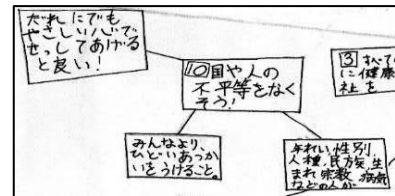 だれにでも
やさしい心で
せっしてあげる
と良い!
10 国や人の
不平等をなく
そう!
3 すべて
に健康
祉を
みんなより、
ひどいあつか
いをうけること。
年れい,性別,
人種,民方族,生
まれ宗教,病気
などの人が